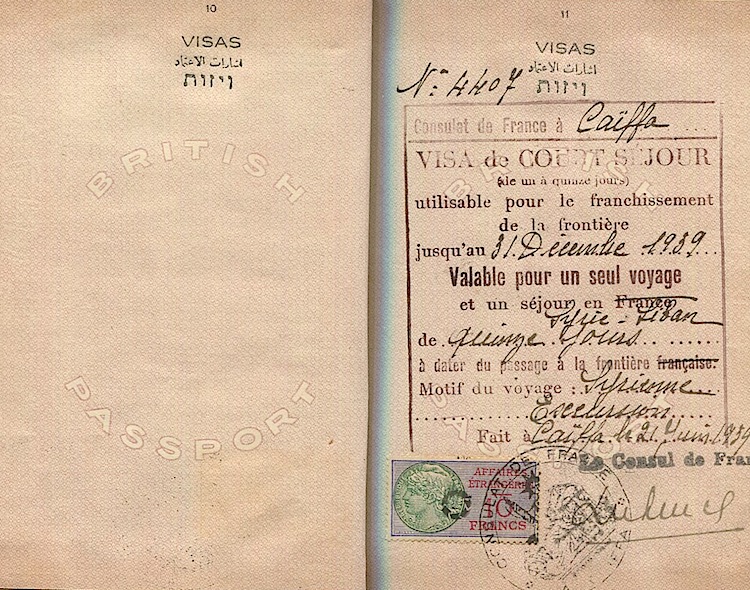 10
VISAS
اشارات الاعتماد
ויזות
BRITISH
PASSPORT
11
VISAS
اشارات الاعتماد
ויזות
N° 4407
Consulat de France à Caïffa
VISA de COURT SEJOUR
(de un à quinze jours)
utilisable pour le franchissement
de la frontière
jusqu'au 31 Décembre 1939
Valable pour un seul voyage
et un séjour en France
Syrie - Liban
de quinze jours
à dater du passage à la frontière française.
Motif du voyage : Syrienne
Excursion
Fait à Caïffa le 21 Juin 1939
Le Consul de Fran
AFFAIRES
ÉTRANGÈRES
10
FRANCS
CONSULAT DE FRANCE